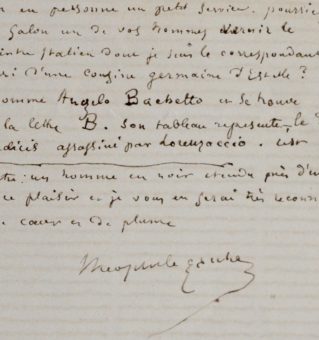 en personne un petit service. pourriez
Salon un de vos hommes vernir le
peintre italien dont je suis le correspondant
mari d'une cousine germaine d'Estelle ?
nomme Angelo Bachetto et se trouve
la lettre B. Son tableau represente le
Médicis assassiné par Lorenzaccio. c'est
un homme en noir etendu près d'un
ce plaisir et je vous en serai très reconn
cœur et de plume
Theophile Gautier